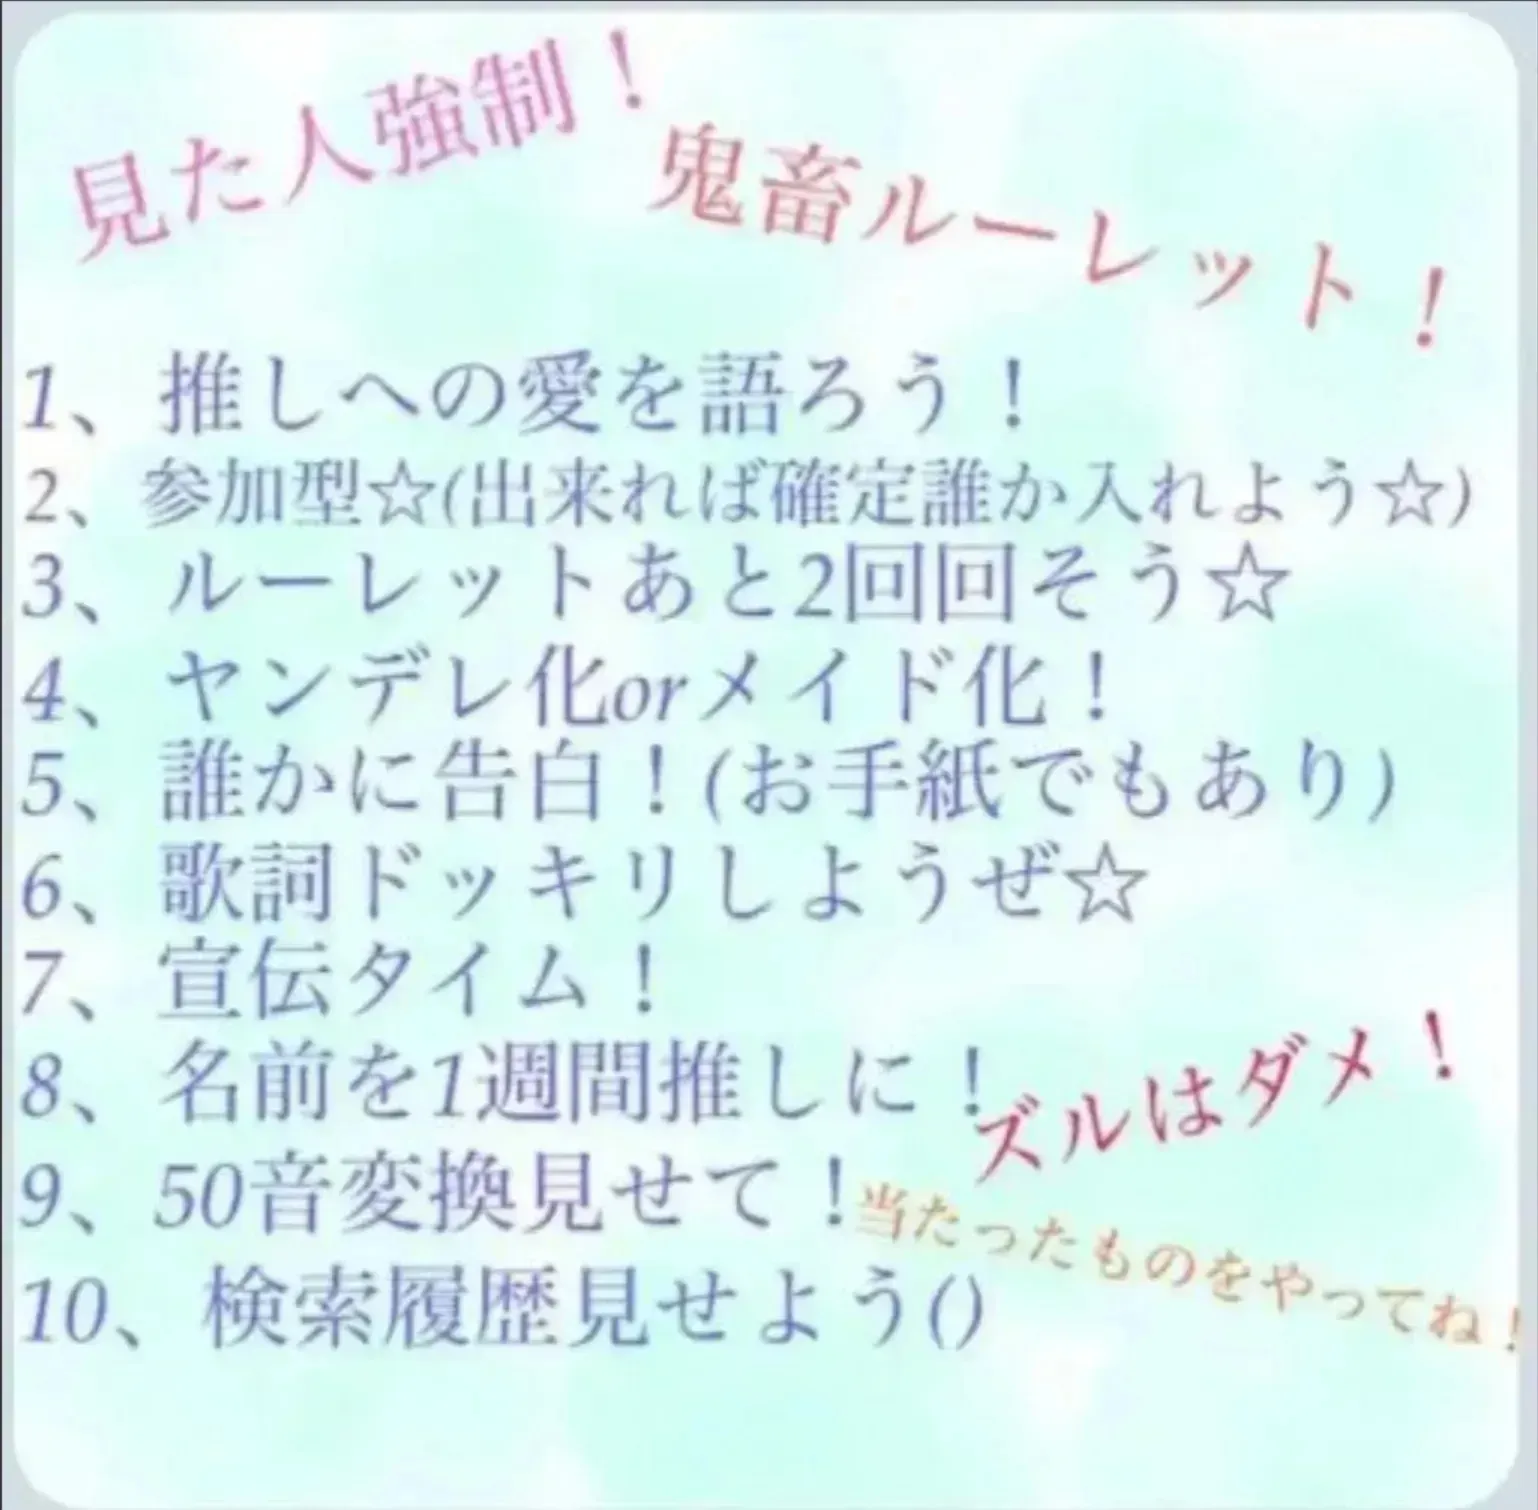 見た人強制！
鬼畜ルーレット！
1、推しへの愛を語ろう！
2、参加型☆(出来れば確定誰か入れよう☆)
3、ルーレットあと2回回そう☆
4、ヤンデレ化orメイド化！
5、誰かに告白！(お手紙でもあり)
6、歌詞ドッキリしようぜ☆
7、宣伝タイム！
8、名前を1週間推しに！
ズルはダメ！
9、50音変換見せて！
当たったものをやってね！
10、検索履歴見せよう()